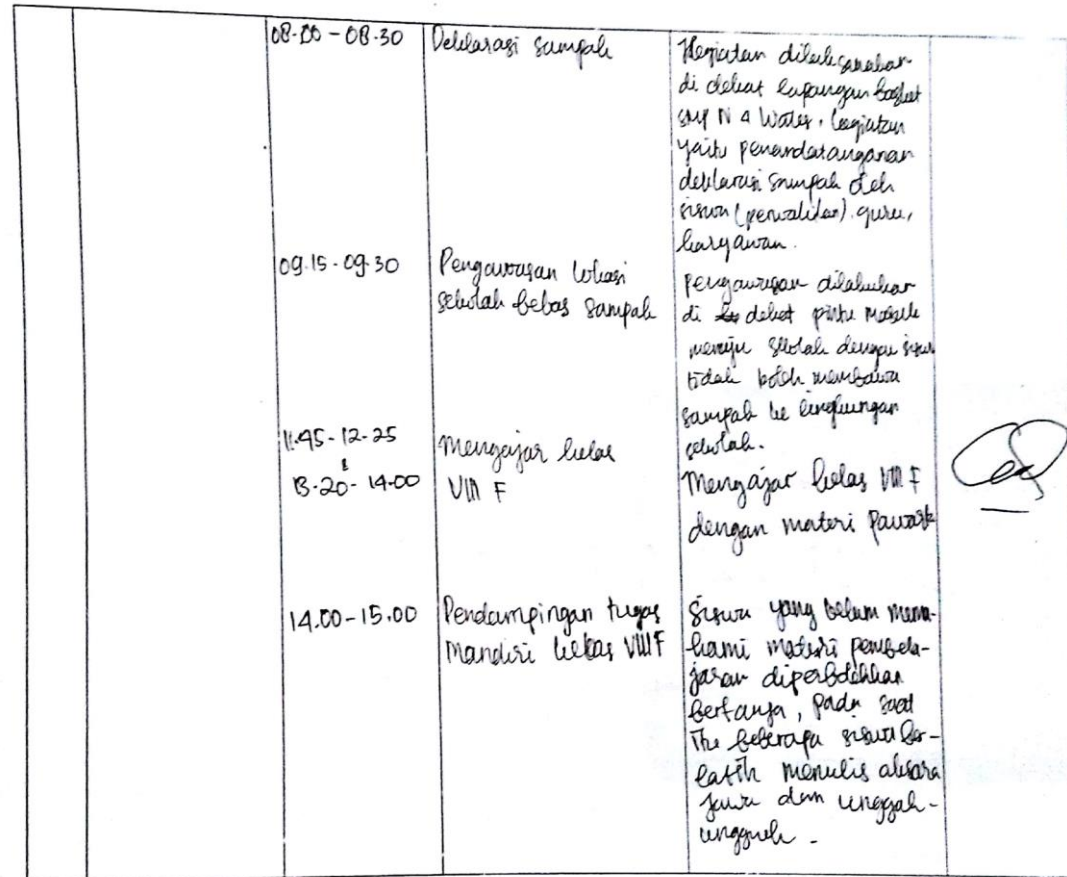 08.00 - 08.30
Deklarasi sampah
Kegiatan dilaksanakan
di dekat lapangan basket
SMP N 4 Wates, kegiatan
yaitu penandatanganan
deklarasi sampah oleh
siswa (perwakilan), guru,
karyawan.
09.15 - 09.30
Pengawasan lokasi
sekolah bebas sampah
Pengawasan dilakukan
di dekat pintu masuk
menuju sekolah dengan siswa
tidak boleh membawa
sampah ke lingkungan
sekolah.
11.45 - 12.25
&
13.20 - 14.00
Mengajar kelas
VIII F
Mengajar kelas VIII F
dengan materi Pawarta
14.00 - 15.00
Pendampingan tugas
Mandiri kelas VIII F
Siswa yang belum mema-
hami materi pembela-
jaran diperbolehkan
bertanya, pada saat
itu beberapa siswa ber-
latih menulis aksara
jawa dan unggah-
ungguh.